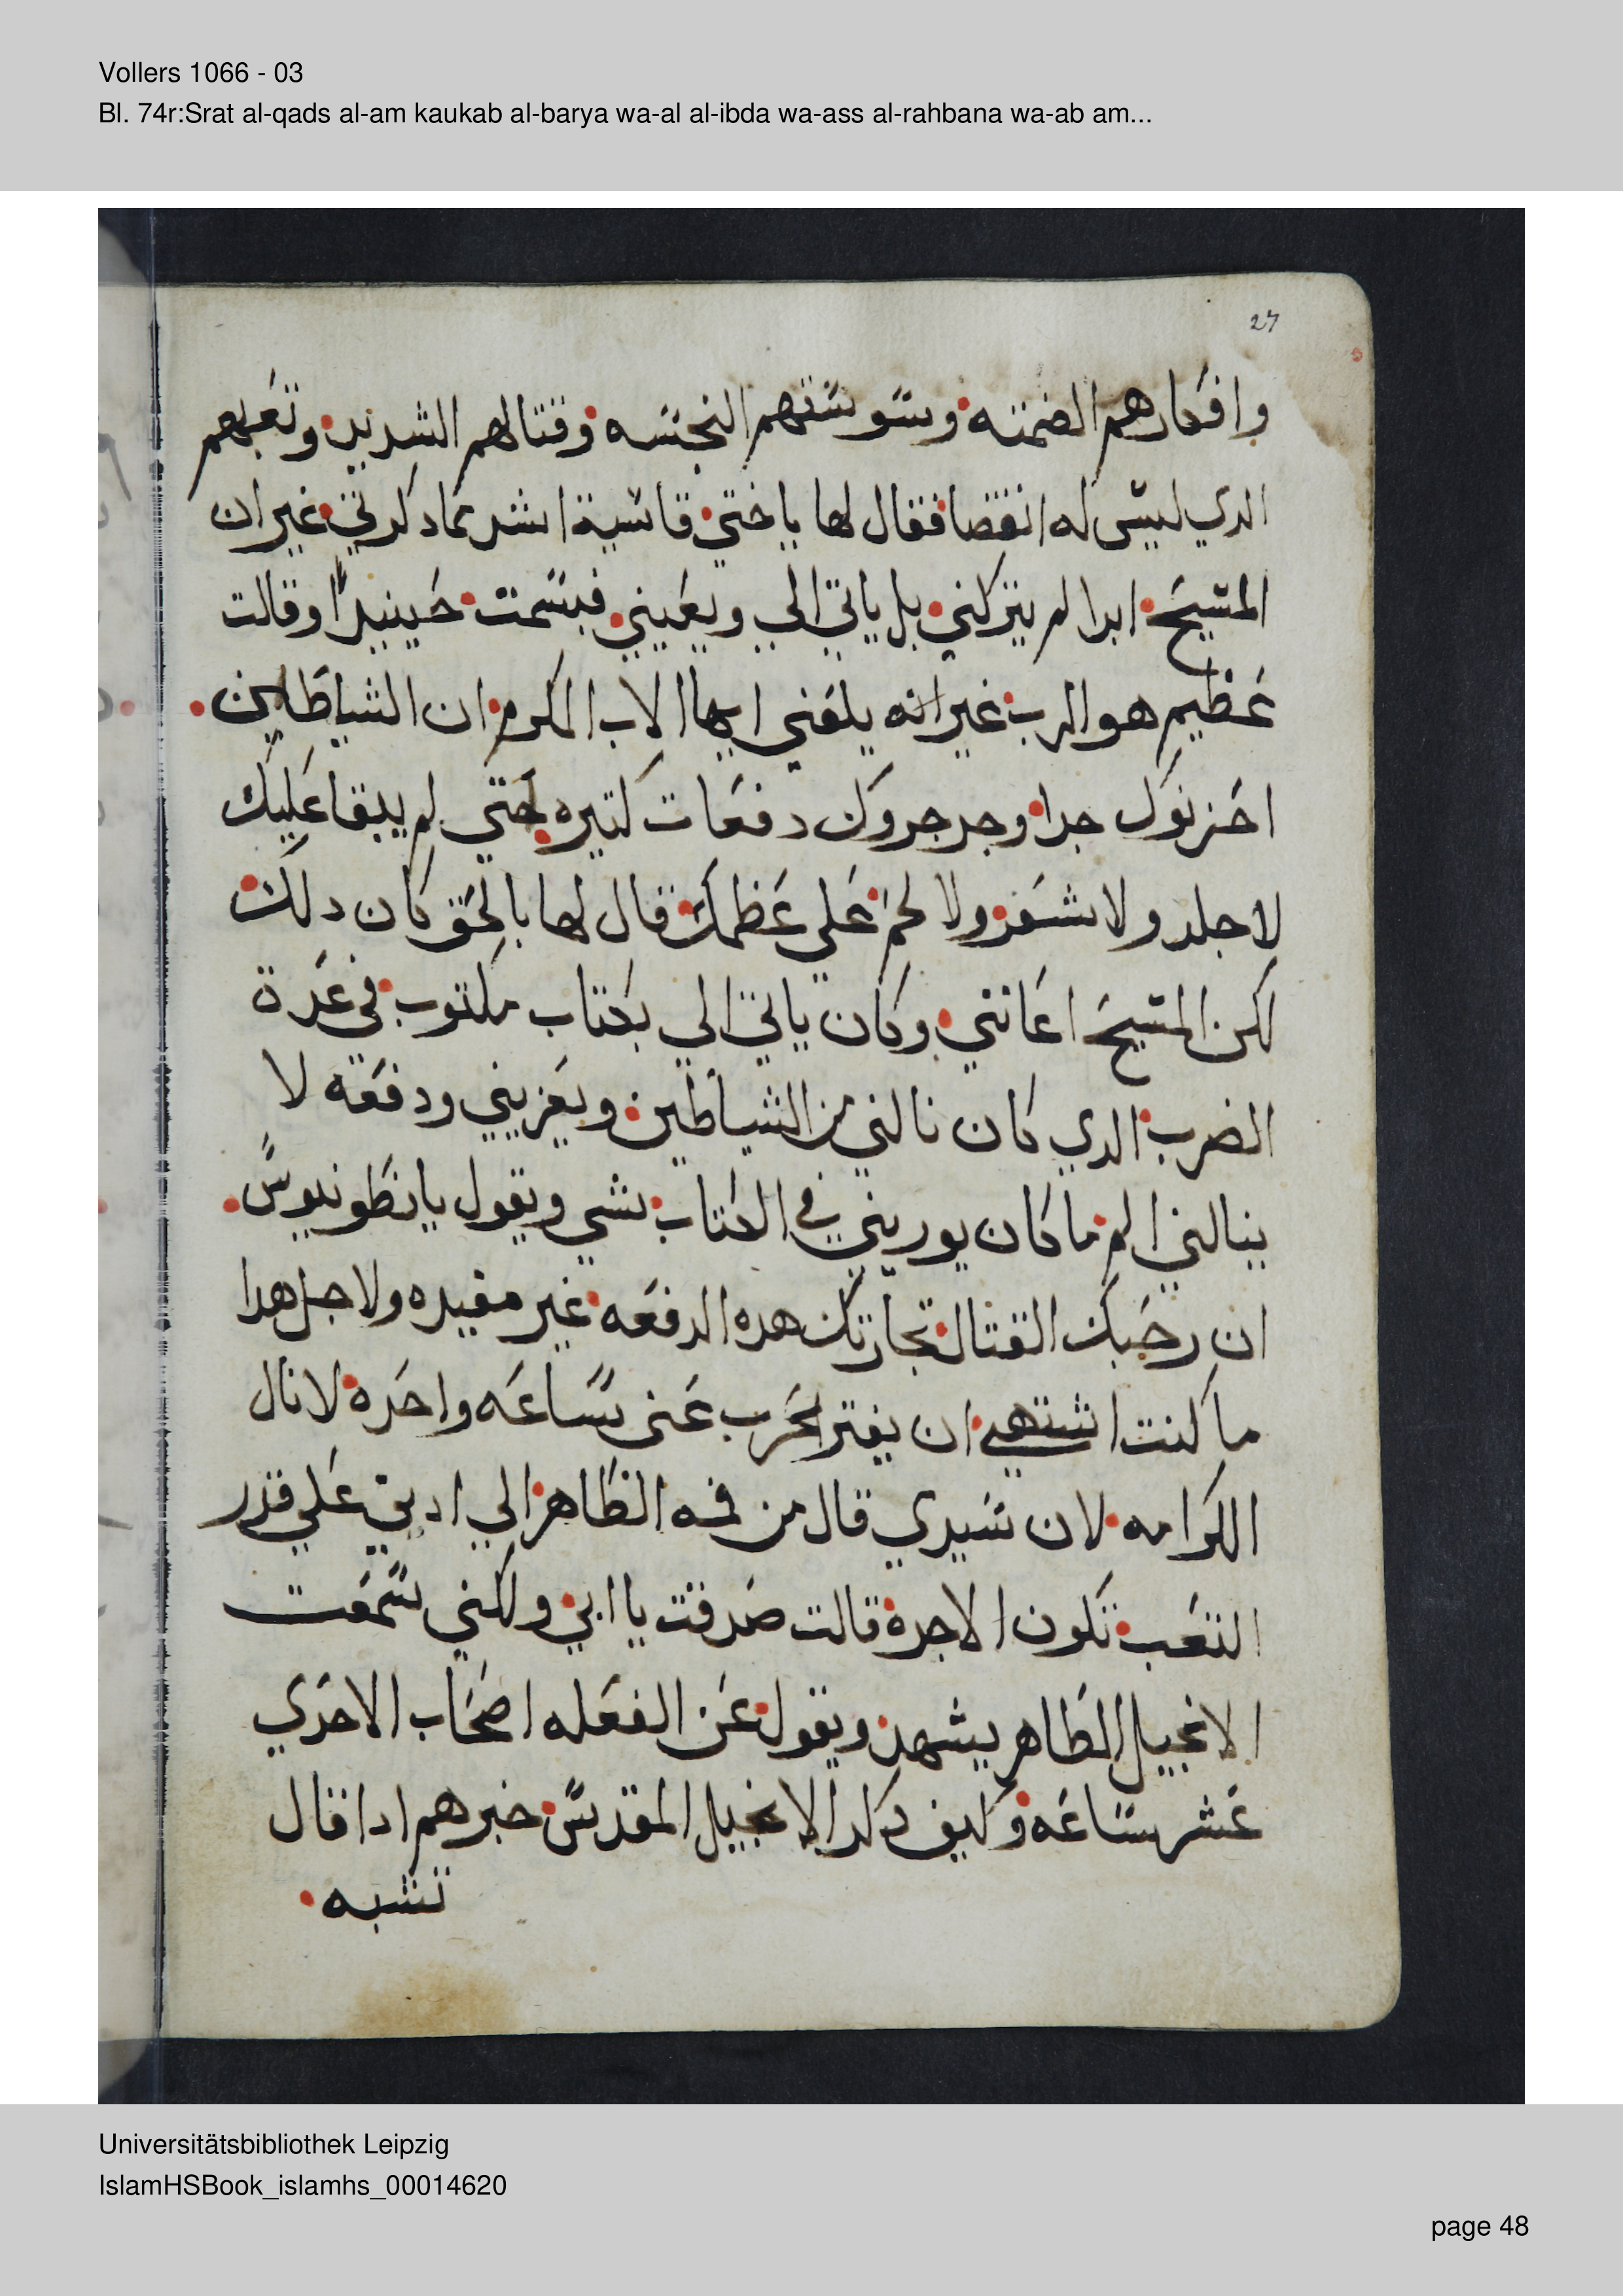 Vollers 1066 - 03
Bl. 74r:Srat al-qads al-am kaukab al-barya wa-al al-ibda wa-ass al-rahbana wa-ab am...
27
وافكارهم وسوستهم النجسه وقتالهم الشديد وتعبهم
الدي ليس له انقضا فقال لها ياختي قاسية اشد مما دكرتي غير ان
المسيح ابدا لم يتركني بل ياتي الي ويعيني فبسمت حينيدا وقالت
عظيم هو الرب غير انه بلغني ايها الاب المكرم ان الشياطين
احزنوك جدا وجرجروك دفعات كتيره حتي لم يبقا عليك
لا جلد ولا شعر ولا لحم علي عظمك قال لها بالحق كان دلك
لكن المسيح اعانني وكان ياتي الي بكتاب مكتوب في عدة
الضرب الدي كان نالني من الشياطين ويعزيني ودفعه لا
ينالني الم ما كان يوريني في الكتاب شي ويقول يانطونيوس
ان رحبك القتال تجارتك هده الدفعه غير مفيده ولاجل هدا
ما كنت اشتهي ان يفتر الحرب عني ساعه واحده لانال
الكرامه لان سيدي قال من فمه الطاهر الي ادني علي قدر
التعب تكون الاجره قالت صدقت يا ابي ولكني سمعت
الانجيل الطاهر يشهد ويقول عن الفعله اصحاب الاحدي
عشر ساعه وكيف دكر الانجيل المقدس خبرهم ادا قال
تشبه
Universitätsbibliothek Leipzig
IslamHSBook_islamhs_00014620
page 48